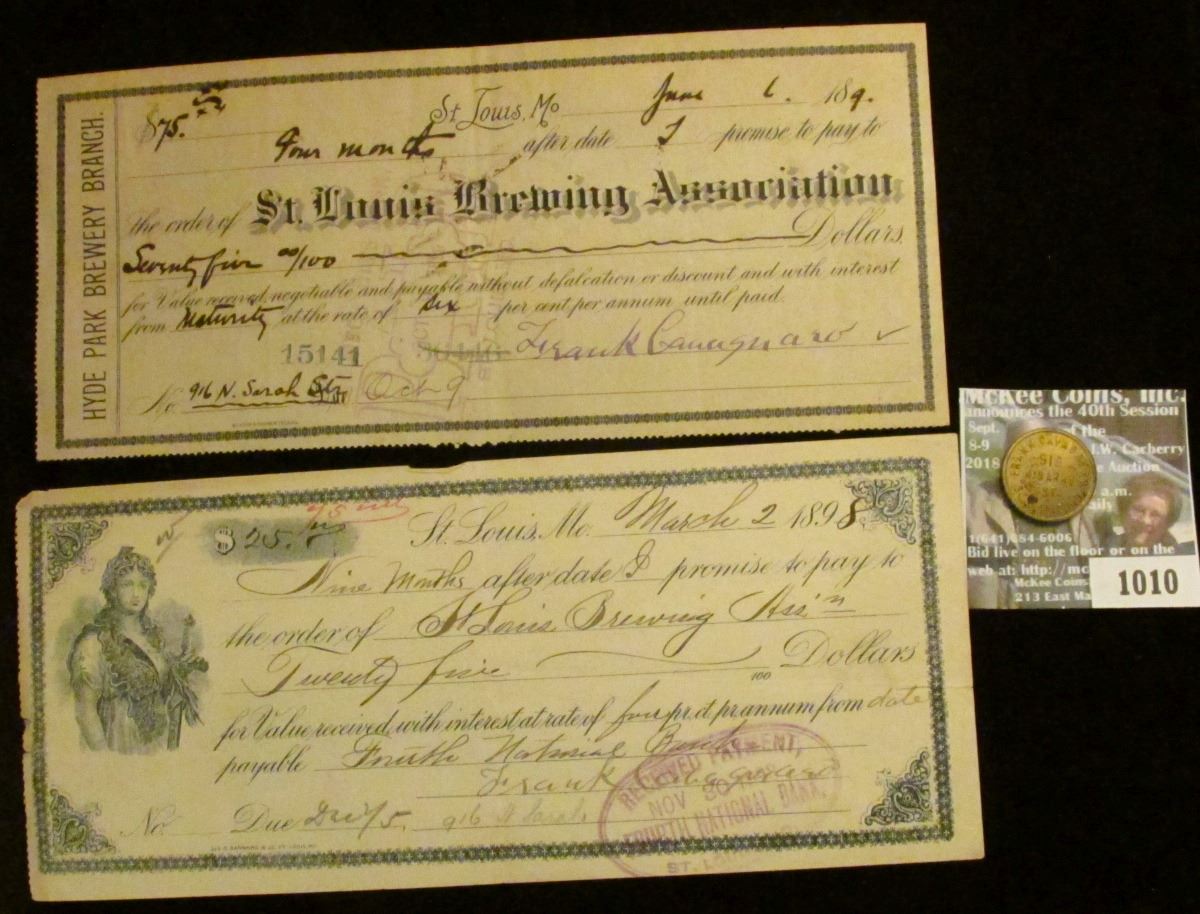 HYDE PARK BREWERY BRANCH.
$75.
St Louis, Mo June 6. 189.
Four months after date I promise to pay to
the order of St. Louis Brewing Association
Seventy five 00/100 Dollars.
for Value received, negotiable and payable without defalcation or discount and with interest
from maturity at the rate of six per cent per annum until paid.
15141
Frank Cavagnaro
No. 916 N. Sarah Str Oct 9
$25.
St. Louis, Mo. March 2 1898
Nine Months after date I promise to pay to
the order of St Louis Brewing Ass'n
Twenty five 100 Dollars
for Value received, with interest at rate of four pr. ct. pr annum from date
payable Fourth National Bank
Frank
No. Due Dec 2/5. 916 N Sarah
RECEIVED PAYMENT,
NOV 30
FOURTH NATIONAL BANK,
ST. LOUIS
McKee Coins, Inc.
announces the 40th Session
Sept. of the
8-9 J.W. Carberry
2018 Auction
a.m.
1(641)684-6006
Bid live on the floor or on the
web at: http://mc
McKee Coins
213 East Ma
1010
FRANK CAVA
916